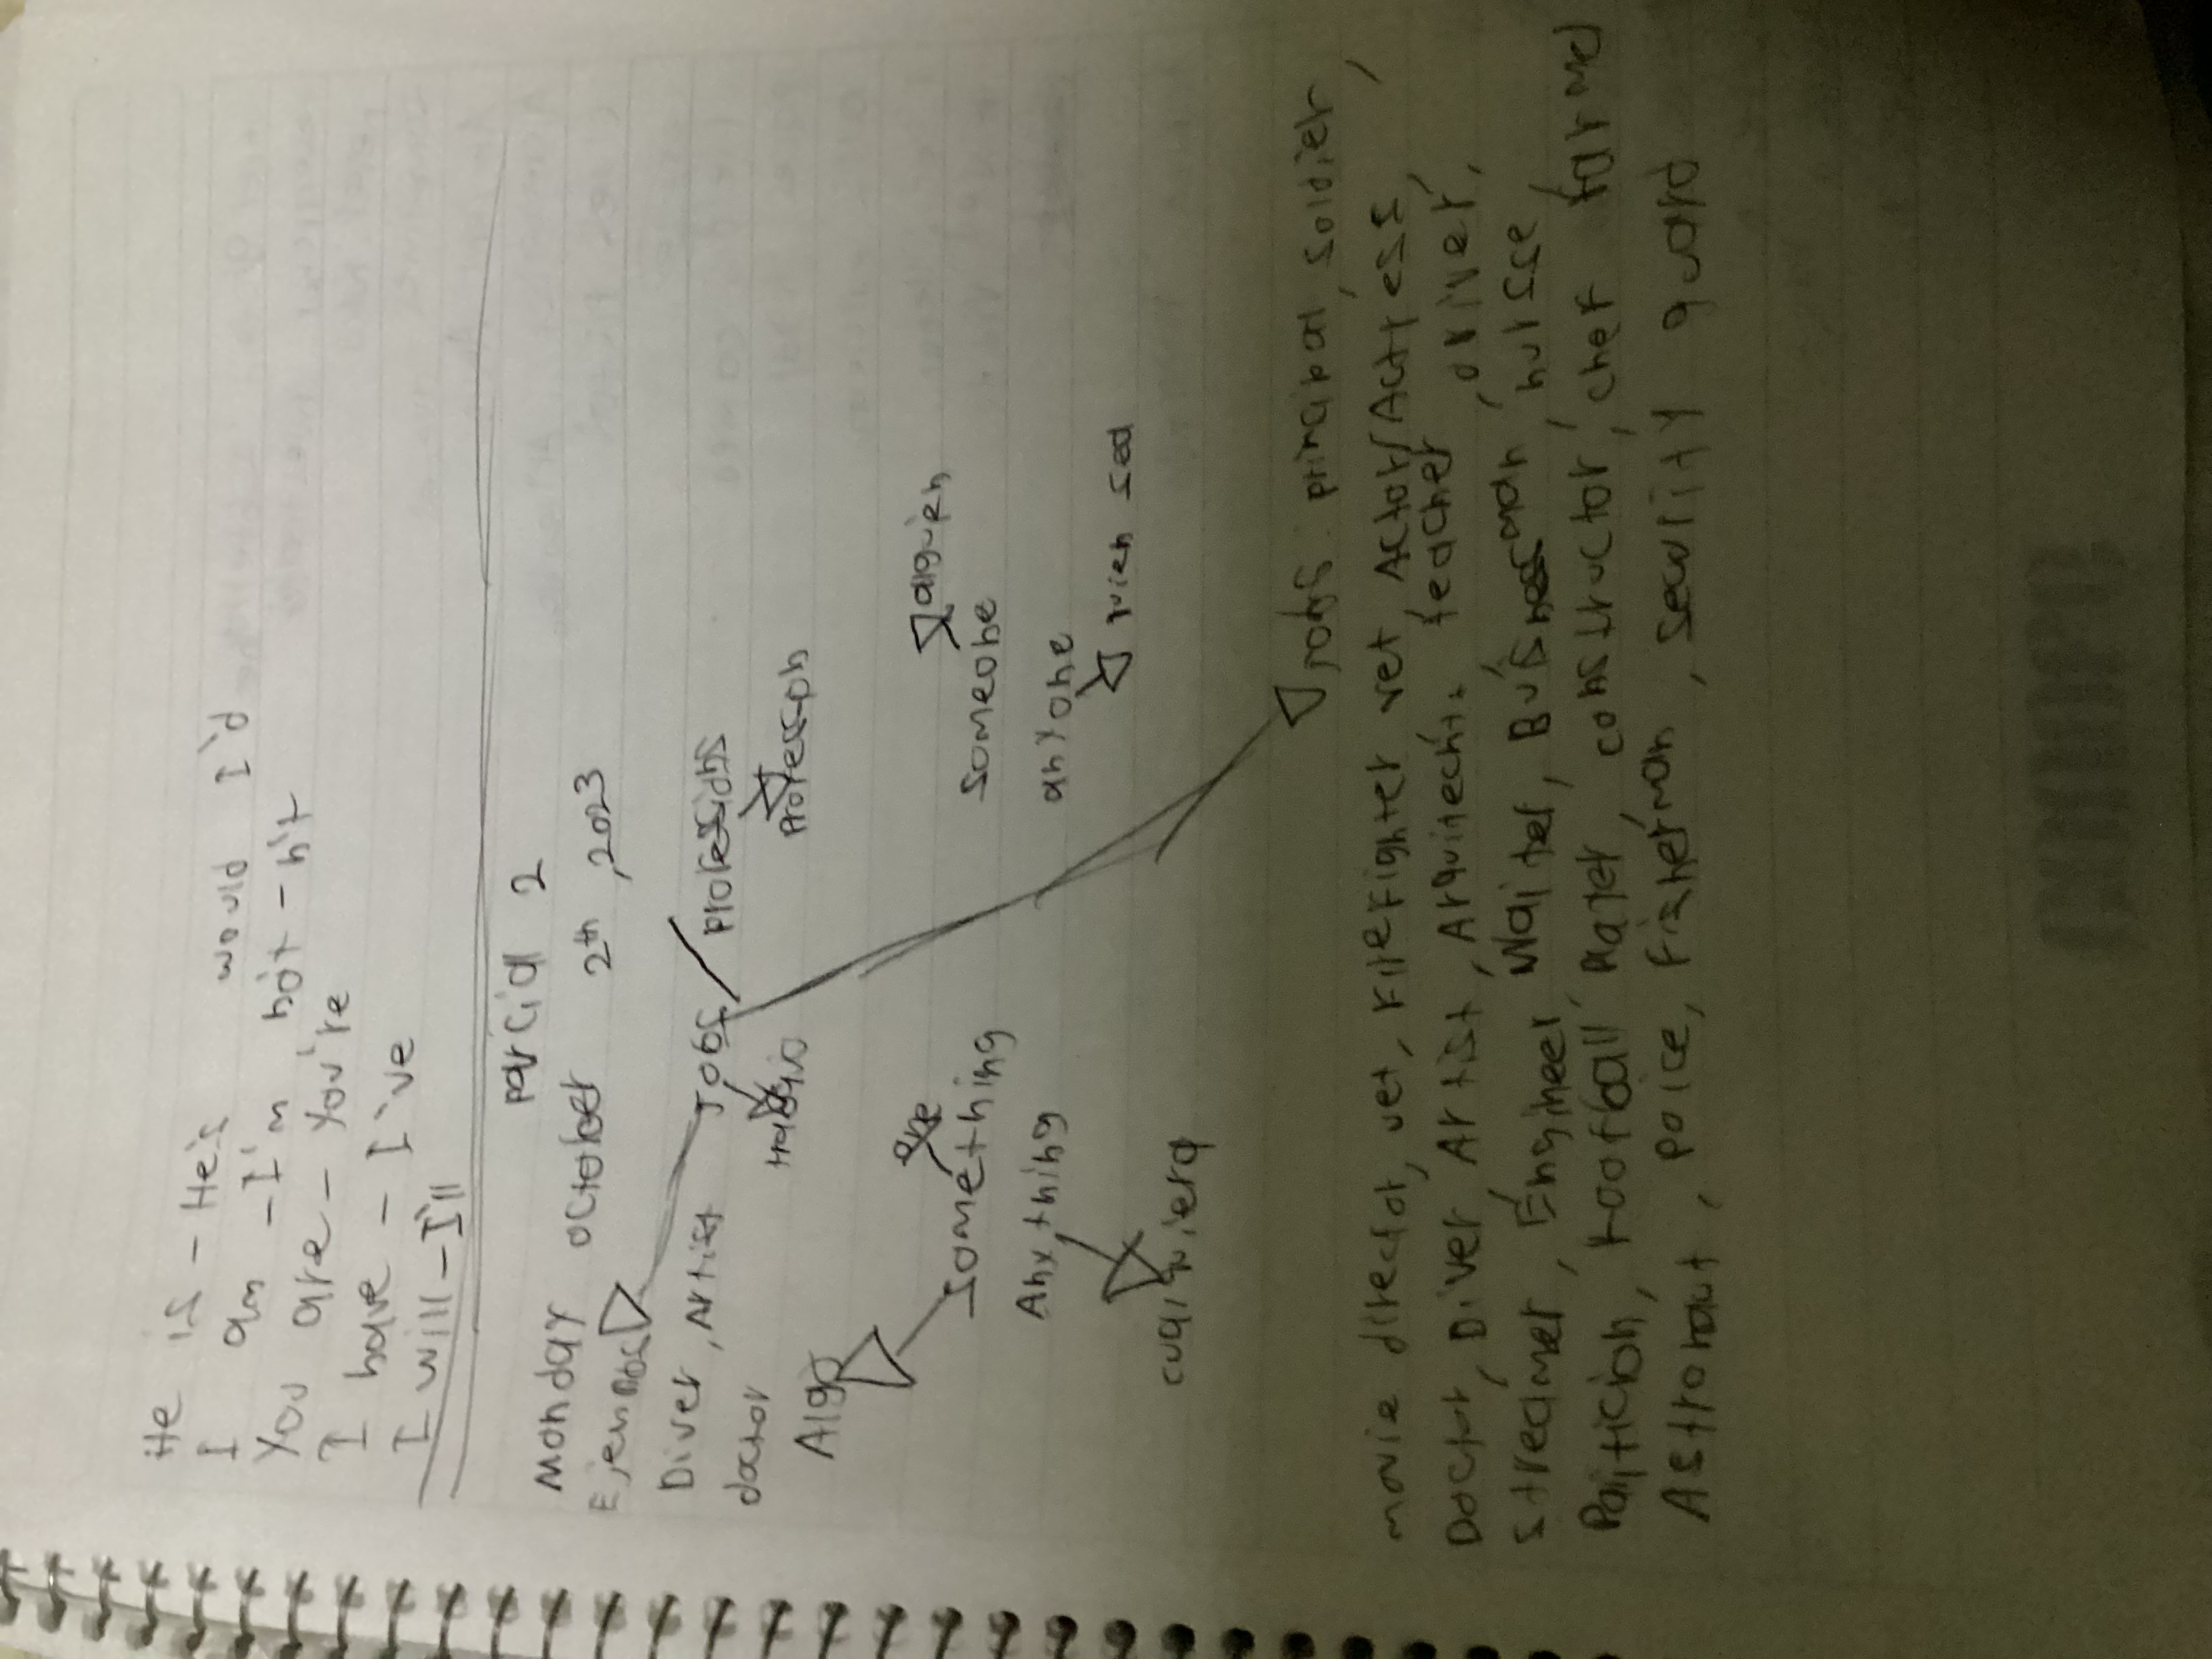 He is - He's
I am - I'm would I'd
You are - You're not - n't
I have - I've
I will - I'll
parcial 2
Monday october 2th, 2023
Ejemplos Jobs / professions
Diver, Artist trabajo
doctor
Algo alguien
Something someone
Anything anyone
cualquiera quien sea
Jobs principal, soldier,
movie director, vet, firefighter vet Actor/Actress,
Doctor, Diver, Artist, Arquitect, teacher, driver,
streamer, Engineer Waiter, Businessman, nurse
Politician, football player, constructor, chef farmer
Astronaut, police, fisherman, security guard